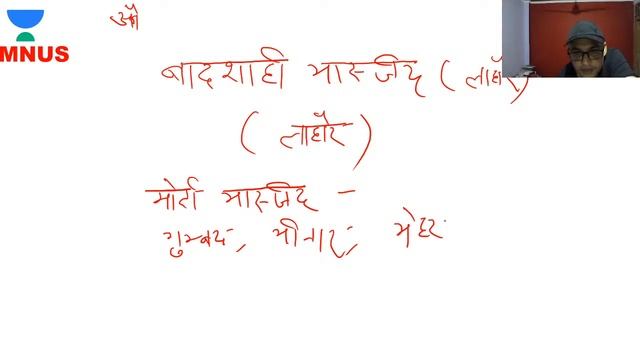 औ
MNUS
बादशाही मास्जिद (लाहौर)
(लाहौर)
मोती मास्जिद -
गुम्बद, मीनार,